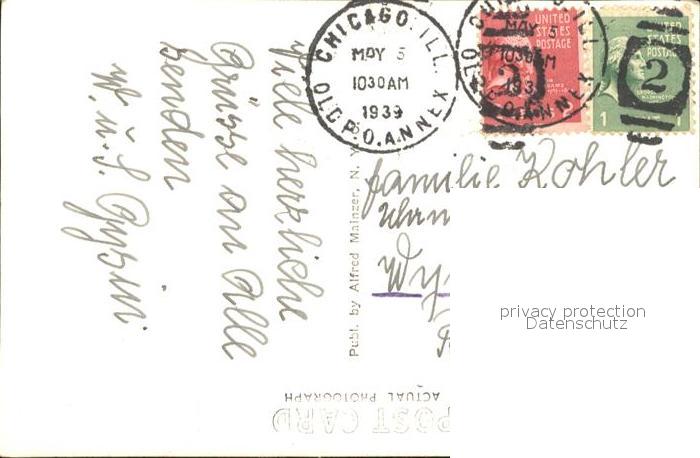 CHICAGO, ILL.
MAY 5
1030 AM
1939
OLD P.O. ANNEX
UNITED
STATES
POSTAGE
UNITED
STATES
POSTAGE
2
2
1
1
Viele herzliche
Grüsse an Alle
senden
W. u. S. Gysin
Familie Kohler
Wy
Publ. by Alfred Mainzer, N. Y.
POST CARD
ACTUAL PHOTOGRAPH
privacy protection
Datenschutz